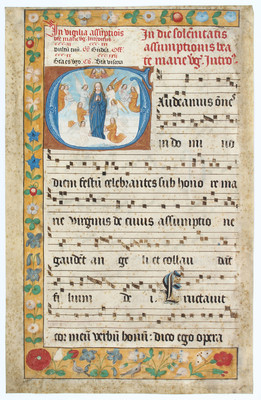 In vigilia assumptiōis
In die solēnitatis
assumptionis bea
te marie vg̃. Introꝰ.
Audeamus ōnes
in do mi no
diem festū celebrantes sub hono re ma
rie virginis de cuius assumptio ne
gaudēt an ge li et collau dāt
fi lium de i. Eructauit
cor meū verbū bonū: dico ego opera